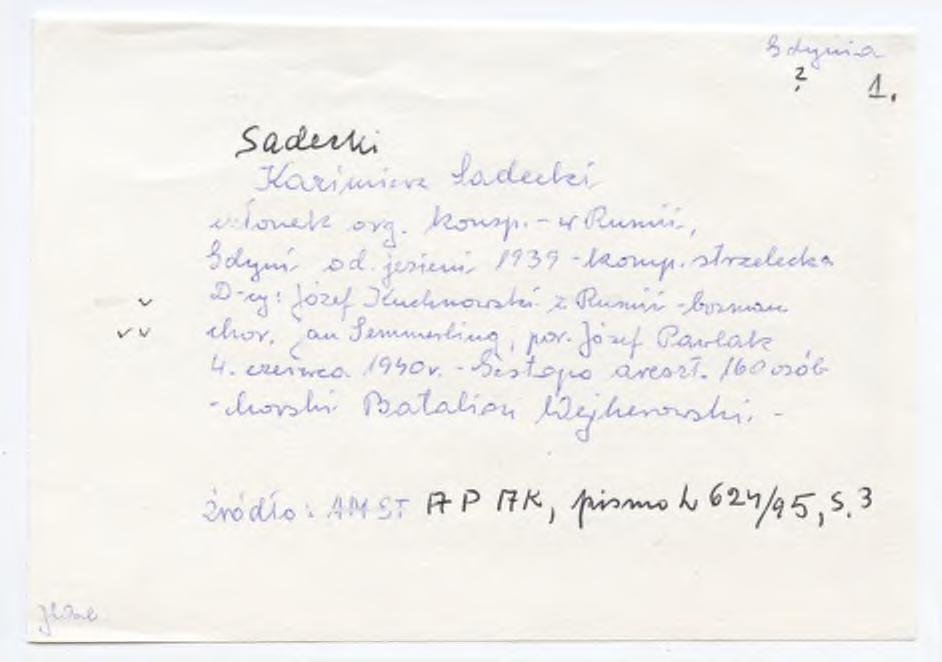 Gdynia
? 1.
Sadecki
Kazimierz Sadecki
członek org. konsp. - w Rumii,
Gdyni od jesieni 1939 - komp. strzelecka
v D-cy: Józef Kuchnowski z Rumii - bosman
v v chor. Jan Semmerling, por. Józef Pawlak
4. czerwca 1940r. - Gestapo areszt. 160 osób
- Batalion Wejherowski. -
źródło: AMST AP AK, pismo L 624/95, s. 3